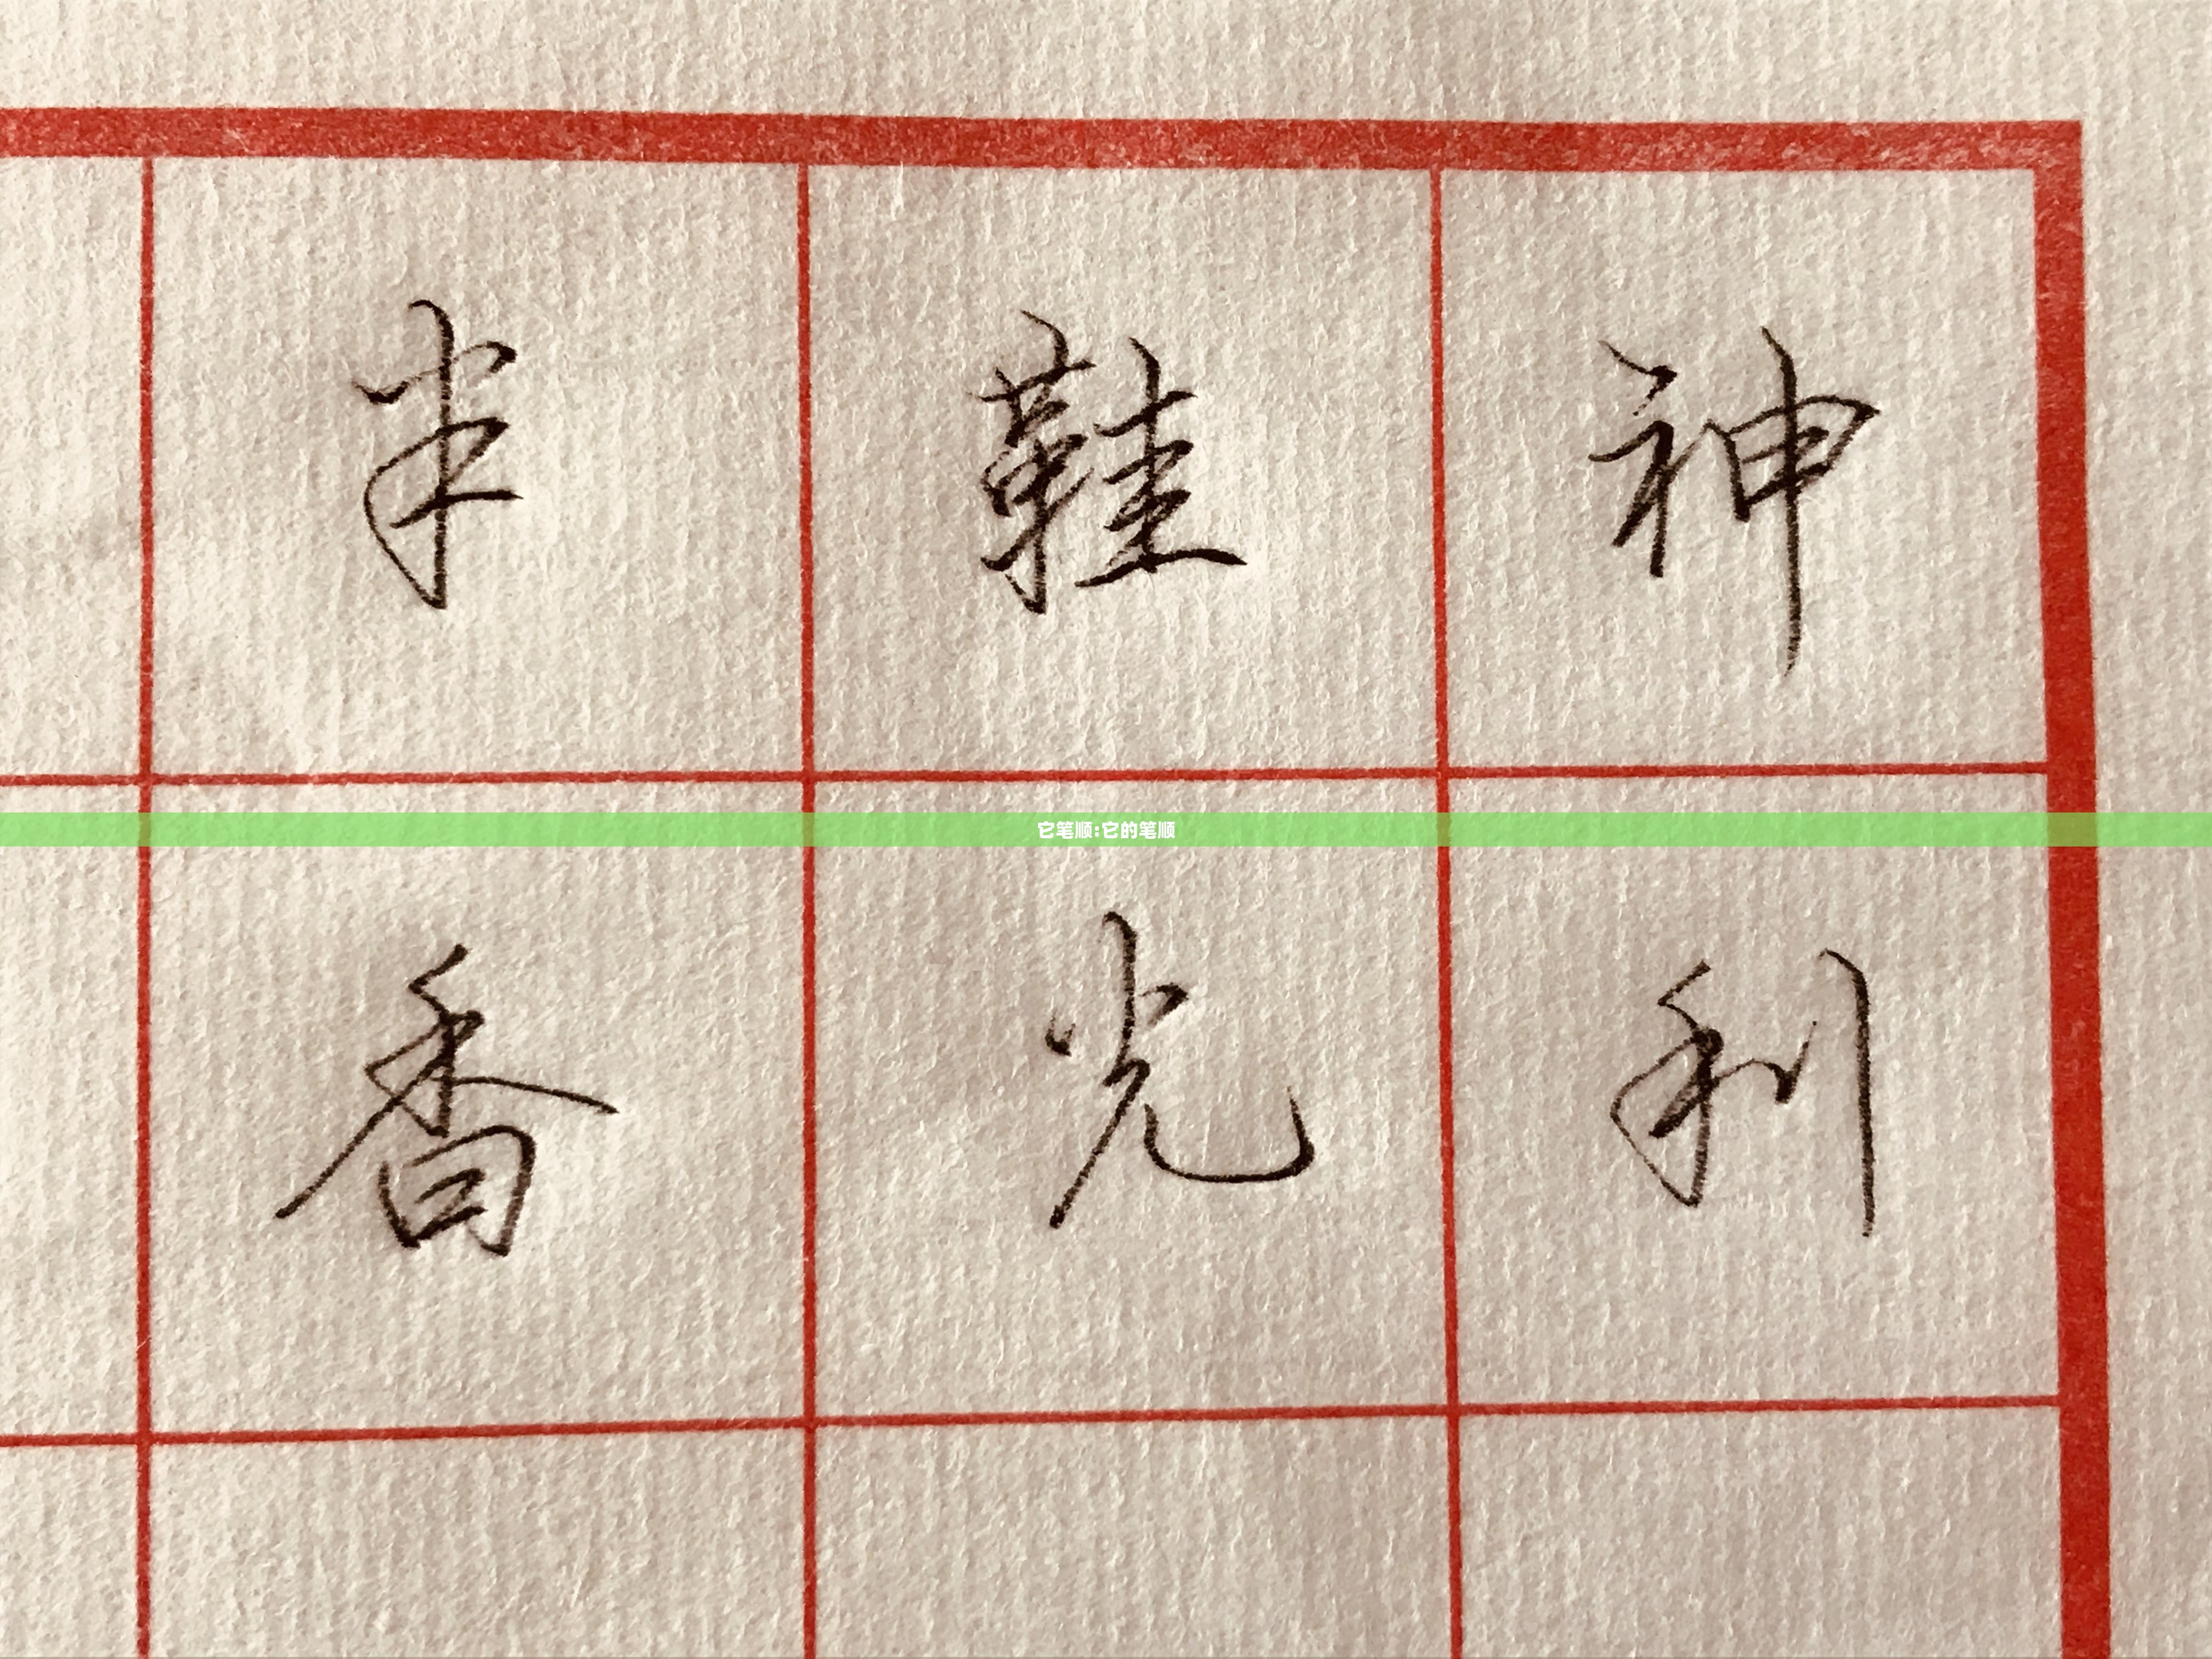 半 鞋 神
它笔顺:它的笔顺
香 光 利